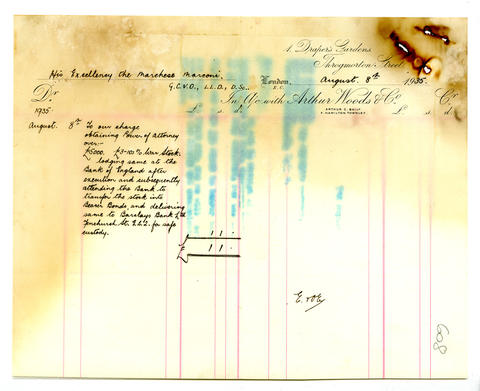 1, Draper's Gardens,
Throgmorton Street,
His Excellency the Marchese Marconi,
G.C.V.O., LL.D., D.Sc.,
London, August. 8th 1935.
E.C.
Dr In A/c with Arthur Woods & Co. Cr
ARTHUR C. 
F. HAMILTON TOWNLEY
1935. £ s. d. £ s. d.
August. 8th To our charge
obtaining Power of Attorney
over:-
£5000. £3-10s% War Stock.
lodging same at the
Bank of England after
execution and subsequently
attending the Bank to
transfer the stock into
Bearer Bonds, and delivering
same to Barclays Bank Ltd
Fenchurch St. E.C.3. for safe
custody. 1 1 -
£ 1 1 -
E. & O E